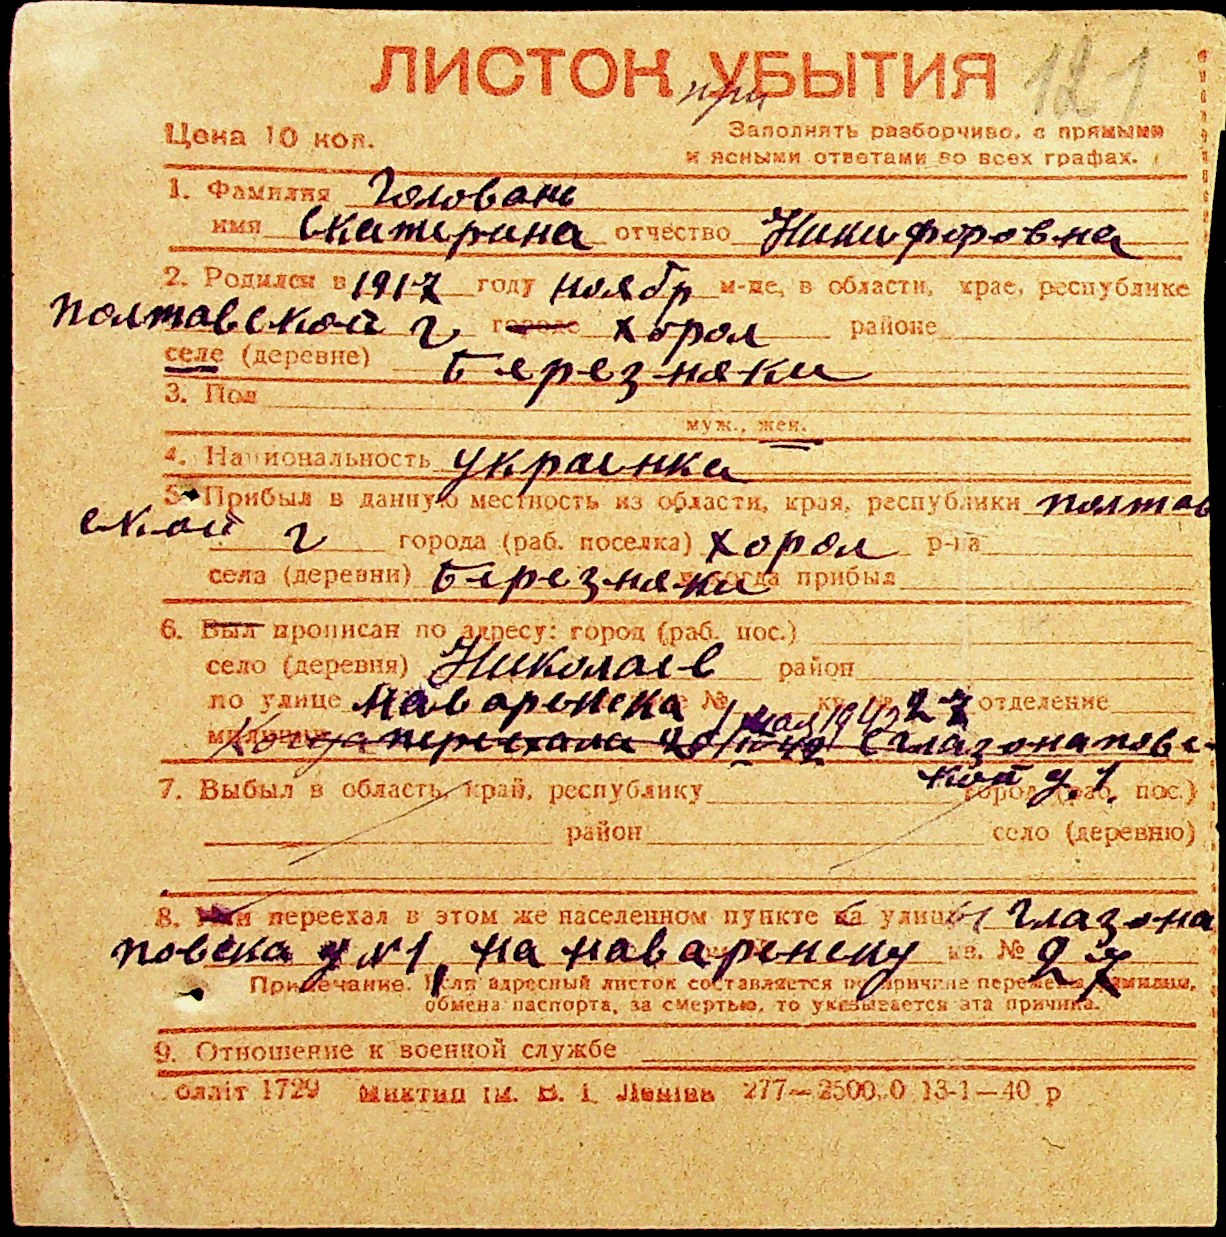 ЛИСТОК УБЫТИЯ 121
при
Цена 10 коп. Заполнять разборчиво, с прямыми
и ясными ответами во всех графах.
1. Фамилия Головань
имя Екатерина отчество Никифоровна
2. Родился в 1917 году ноябр м-це, в области, крае, республике
Полтавской г городе Хорол районе
селе (деревне) Березняки
3. Пол
муж., жен.
4. Национальность украинка
5. Прибыл в данную местность из области, края, республики Полтав
ской г города (раб. поселка) Хорол р-на
села (деревни) Березняки когда прибыл
6. Был прописан по адресу: город (раб. пос.)
село (деревня) Николаев район
по улице Наваренска № 1 мая 1942 27 отделение
милиции Когда переехала с Глазонапове-
кой д. 1.
7. Выбыл в область, край, республику город (раб. пос.)
район село (деревню)
8. Или переехал в этом же населенном пункте на улицы Глазона
повска д №1, на наваренску кв. № 27
Примечание. Если адресный листок составляется по причине перемены фамилии,
обмена паспорта, за смертью, то указывается эта причина.
9. Отношение к военной службе
облліт 1729 Миктип ім. В. І. Леніна 277—2500,0 13-1—40 р